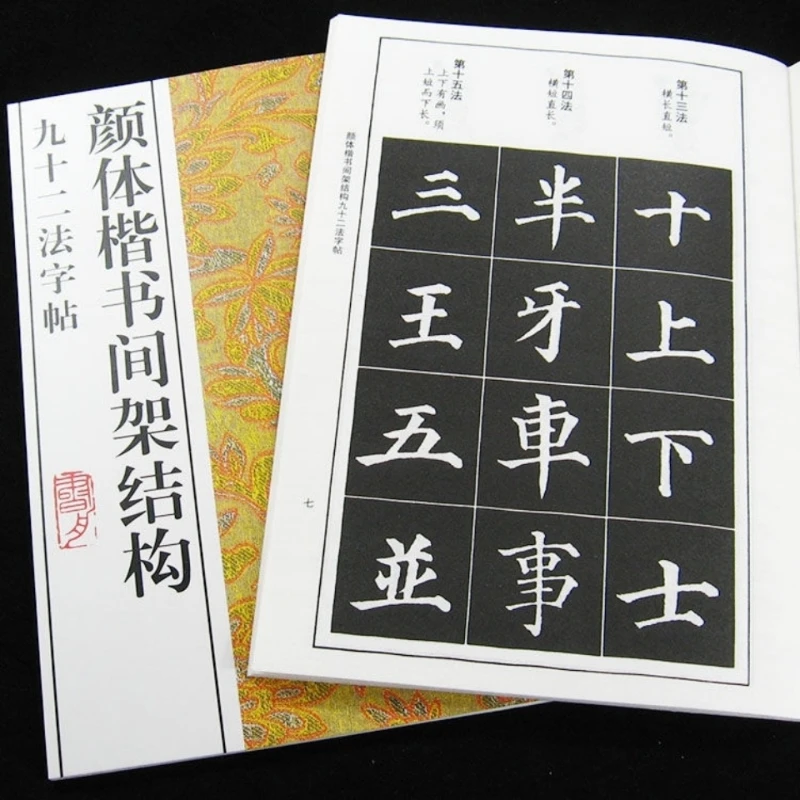 颜体楷书间架结构
九十二法字帖
第十三法
横长直短。
第十四法
横短直长。
第十五法
上下有画,须
上短而下长。
十上下士
半牙車事
三王五並
颜体楷书间架结构九十二法字帖
七